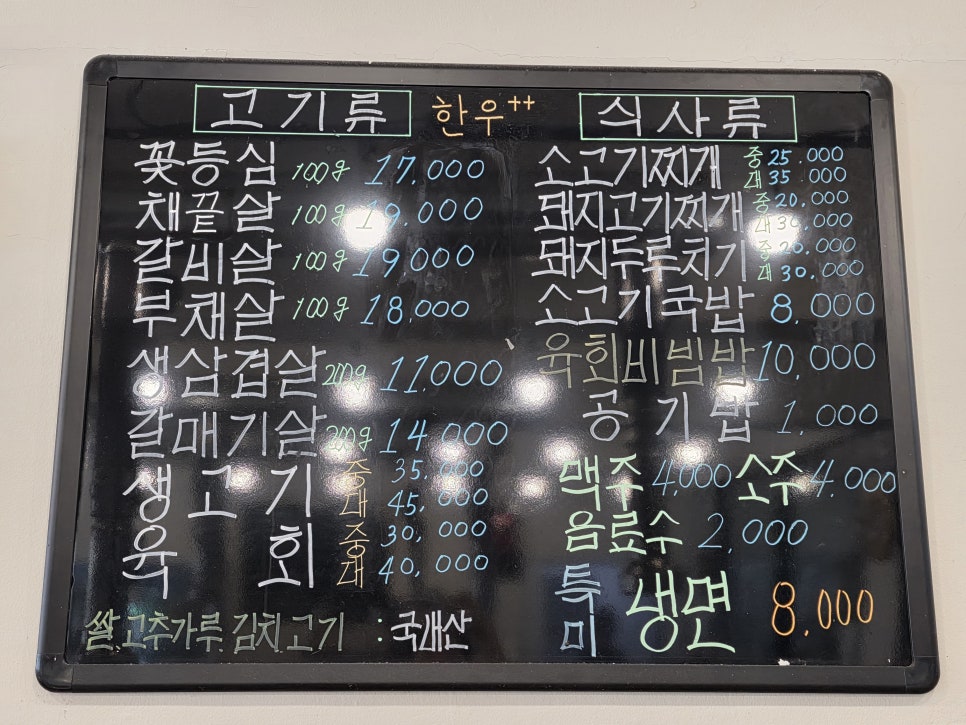 고기류 한우++
꽃등심 100g 17,000
채끝살 100g 19,000
갈비살 100g 19,000
부채살 100g 18,000
생삼겹살 200g 11,000
갈매기살 200g 14,000
생고기 중 35,000
대 45,000
육회 중 30,000
대 40,000
쌀.고추가루.김치.고기 : 국내산
식사류
소고기찌개 중 25,000
대 35,000
돼지고기찌개 중 20,000
대 30,000
돼지두루치기 중 20,000
대 30,000
소고기국밥 8,000
육회비빔밥 10,000
공기밥 1,000
맥주 4,000 소주 4,000
음료수 2,000
특미 냉면 8,000